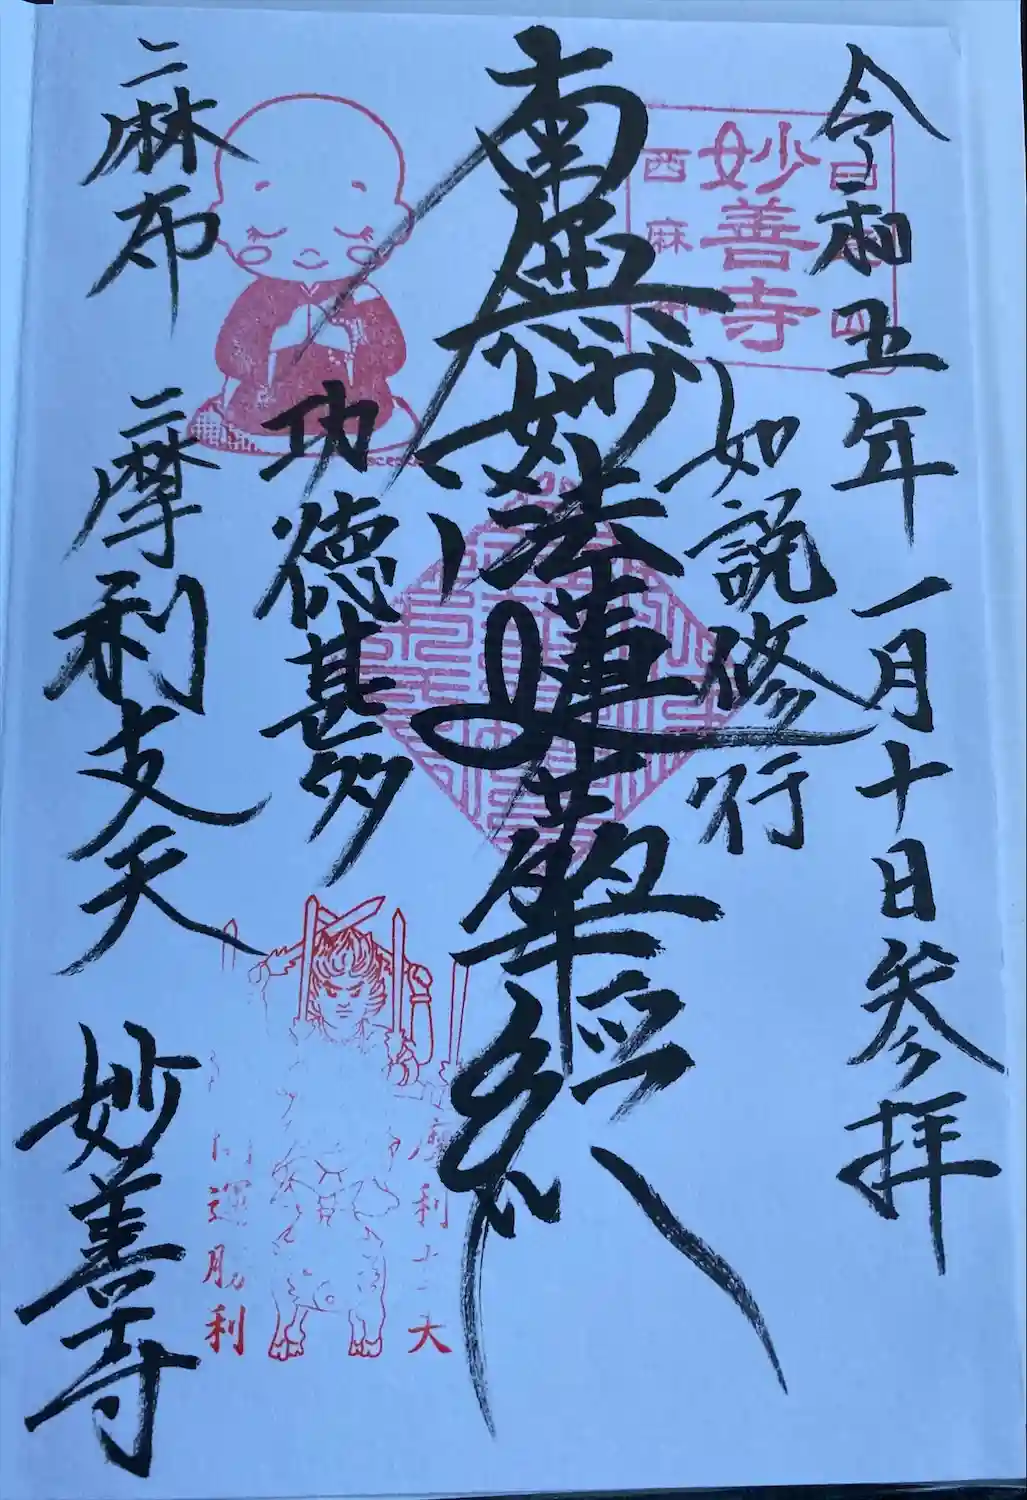 令和五年一月十日参拝
妙善寺
西麻
如説修行
南無妙法蓮華経
功徳甚多
麻布
摩利支天
妙善寺
開運勝利
摩利支天